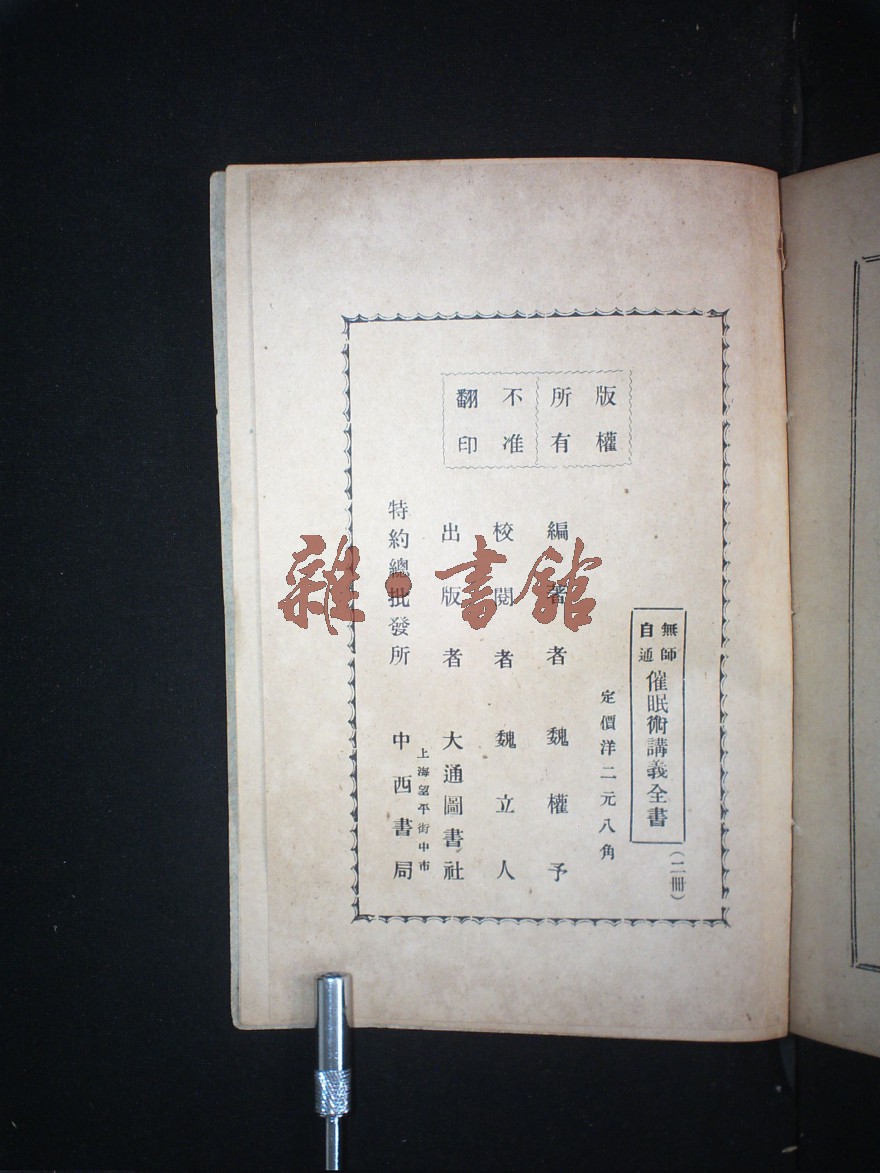 版權
所有
不准
翻印
無師
自通
催眠術講義全書
(二冊)
定價洋二元八角
編著者 魏權予
校閱者 魏立人
出版者 大通圖書社
上海望平街中市
特約總批發所 中西書局
雜·書館